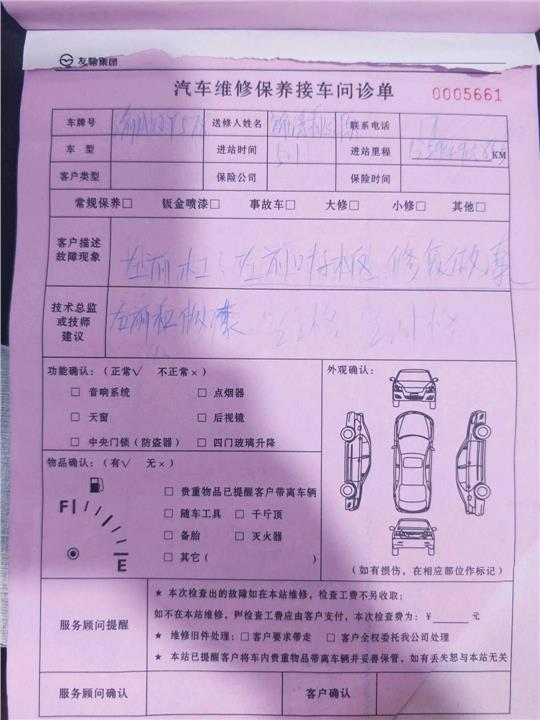 友输集团
汽车维修保养接车问诊单
0005661
车牌号 送修人姓名 联系电话
车 型 进站时间 5.1 进站里程 KM
客户类型 保险公司 保险时间
常规保养□ 钣金喷漆□ 事故车□ 大修□ 小修□ 其他□
客户描述
故障现象
左前杠 左前 板 修复做漆
技术总监
或技师
建议
左前杠做漆
功能确认:(正常√ 不正常×)
□ 音响系统 □ 点烟器
□ 天窗 □ 后视镜
□ 中央门锁(防盗器) □ 四门玻璃升降
外观确认:
物品确认:(有√ 无×)
□ 贵重物品已提醒客户带离车辆
□ 随车工具 □ 千斤顶
□ 备胎 □ 灭火器
□ 其它( )
F
E
(如有损伤,在相应部位作标记)
服务顾问提醒
★ 本次检查出的故障如在本站维修,检查工费不另收取;
如不在本站维修,则检查工费应由客户支付,本次检查费为:¥ 元
★ 维修旧件处理:□ 客户要求带走 □ 客户全权委托我公司处理
★ 本站已提醒客户将车内贵重物品带离车辆并妥善保管,如有丢失恕与本站无关
服务顾问确认 客户确认